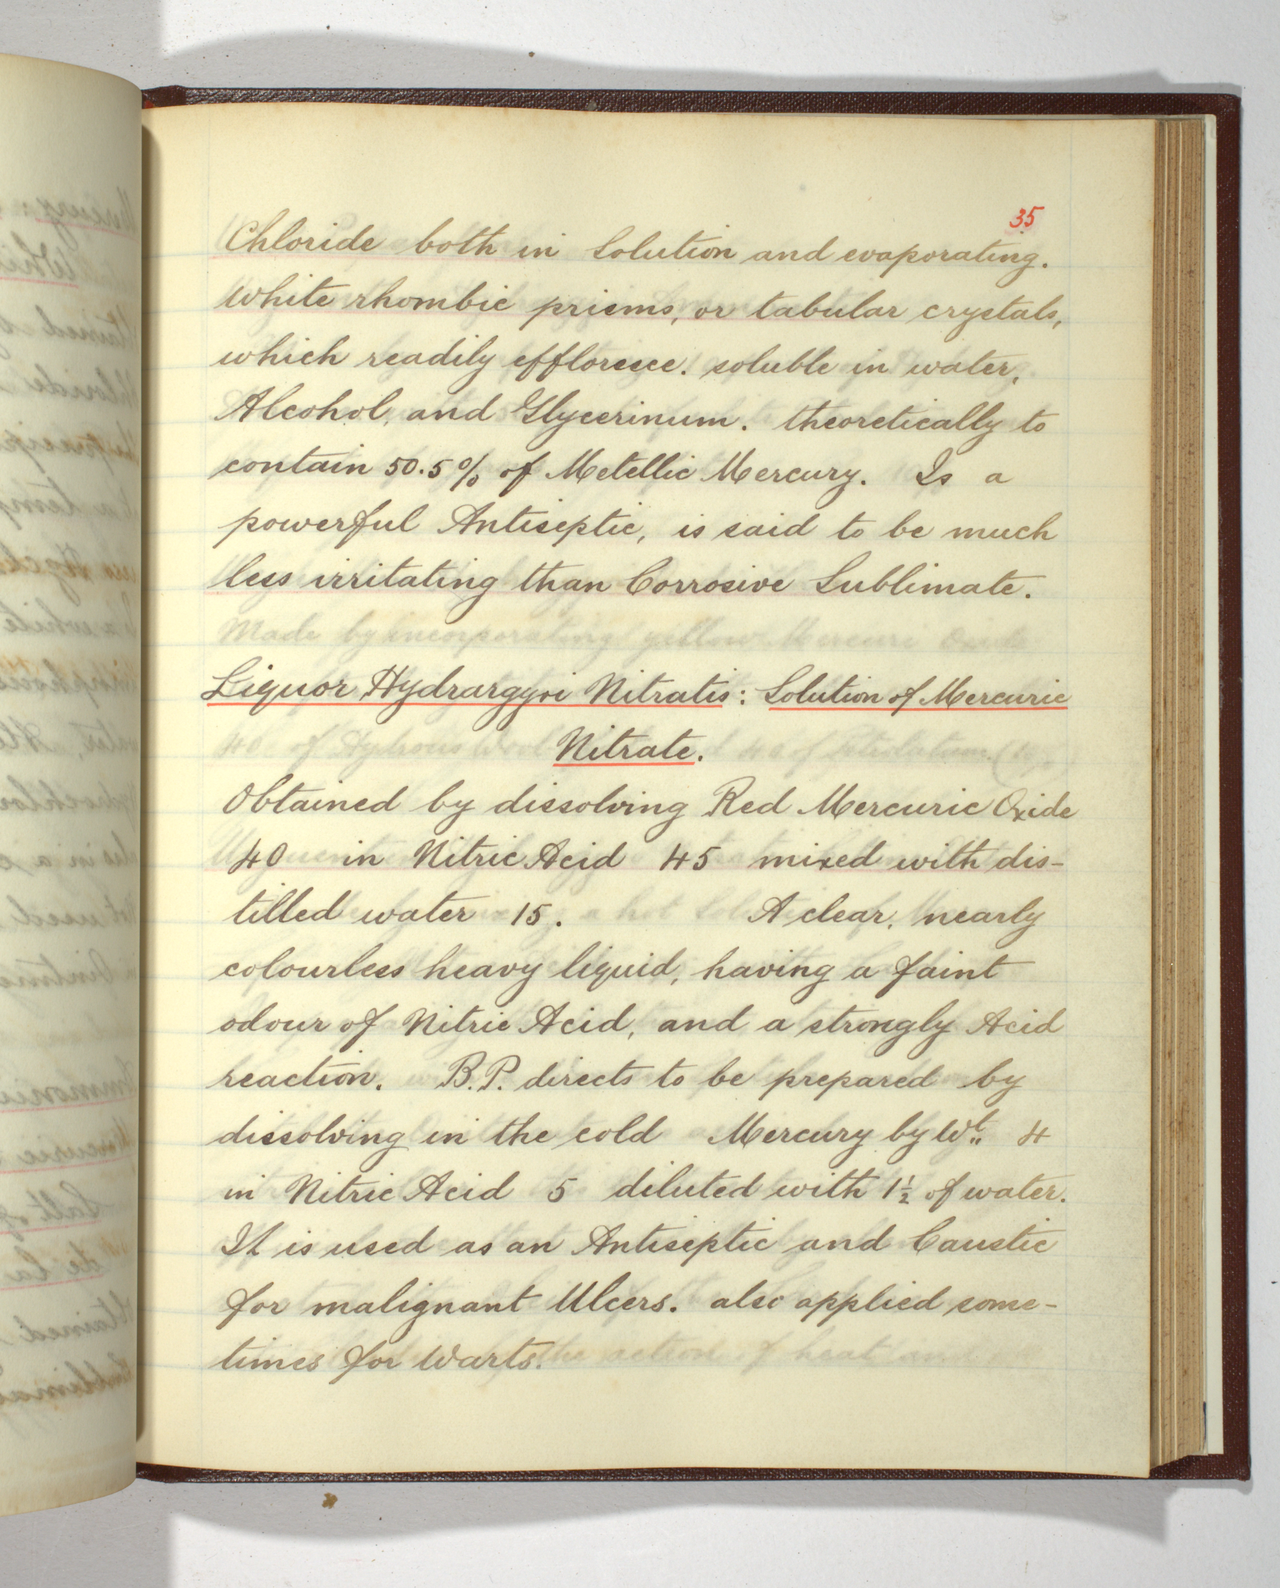 35
Chloride both in Solution and evaporating.
White rhombic prisms, or tabular crystals,
which readily effloresce. soluble in water,
Alcohol, and Glycerinum. theoretically to
contain 50.5% of Metellic Mercury. Is a
powerful Antiseptic, is said to be much
less irritating than Corrosive Sublimate.
Liquor Hydrargyri Nitratis: Solution of Mercuric
Nitrate.
Obtained by dissolving Red Mercuric Oxide
40 in Nitric Acid 45 mixed with dis-
tilled water 15. A clear, nearly
colourless heavy liquid, having a faint
odour of Nitric Acid, and a strongly Acid
reaction. B.P. directs to be prepared by
dissolving in the cold Mercury by Wt. 4
in Nitric Acid 5 diluted with 1½ of water.
It is used as an Antiseptic and Caustic
for malignant Ulcers. also applied some-
times for Warts.